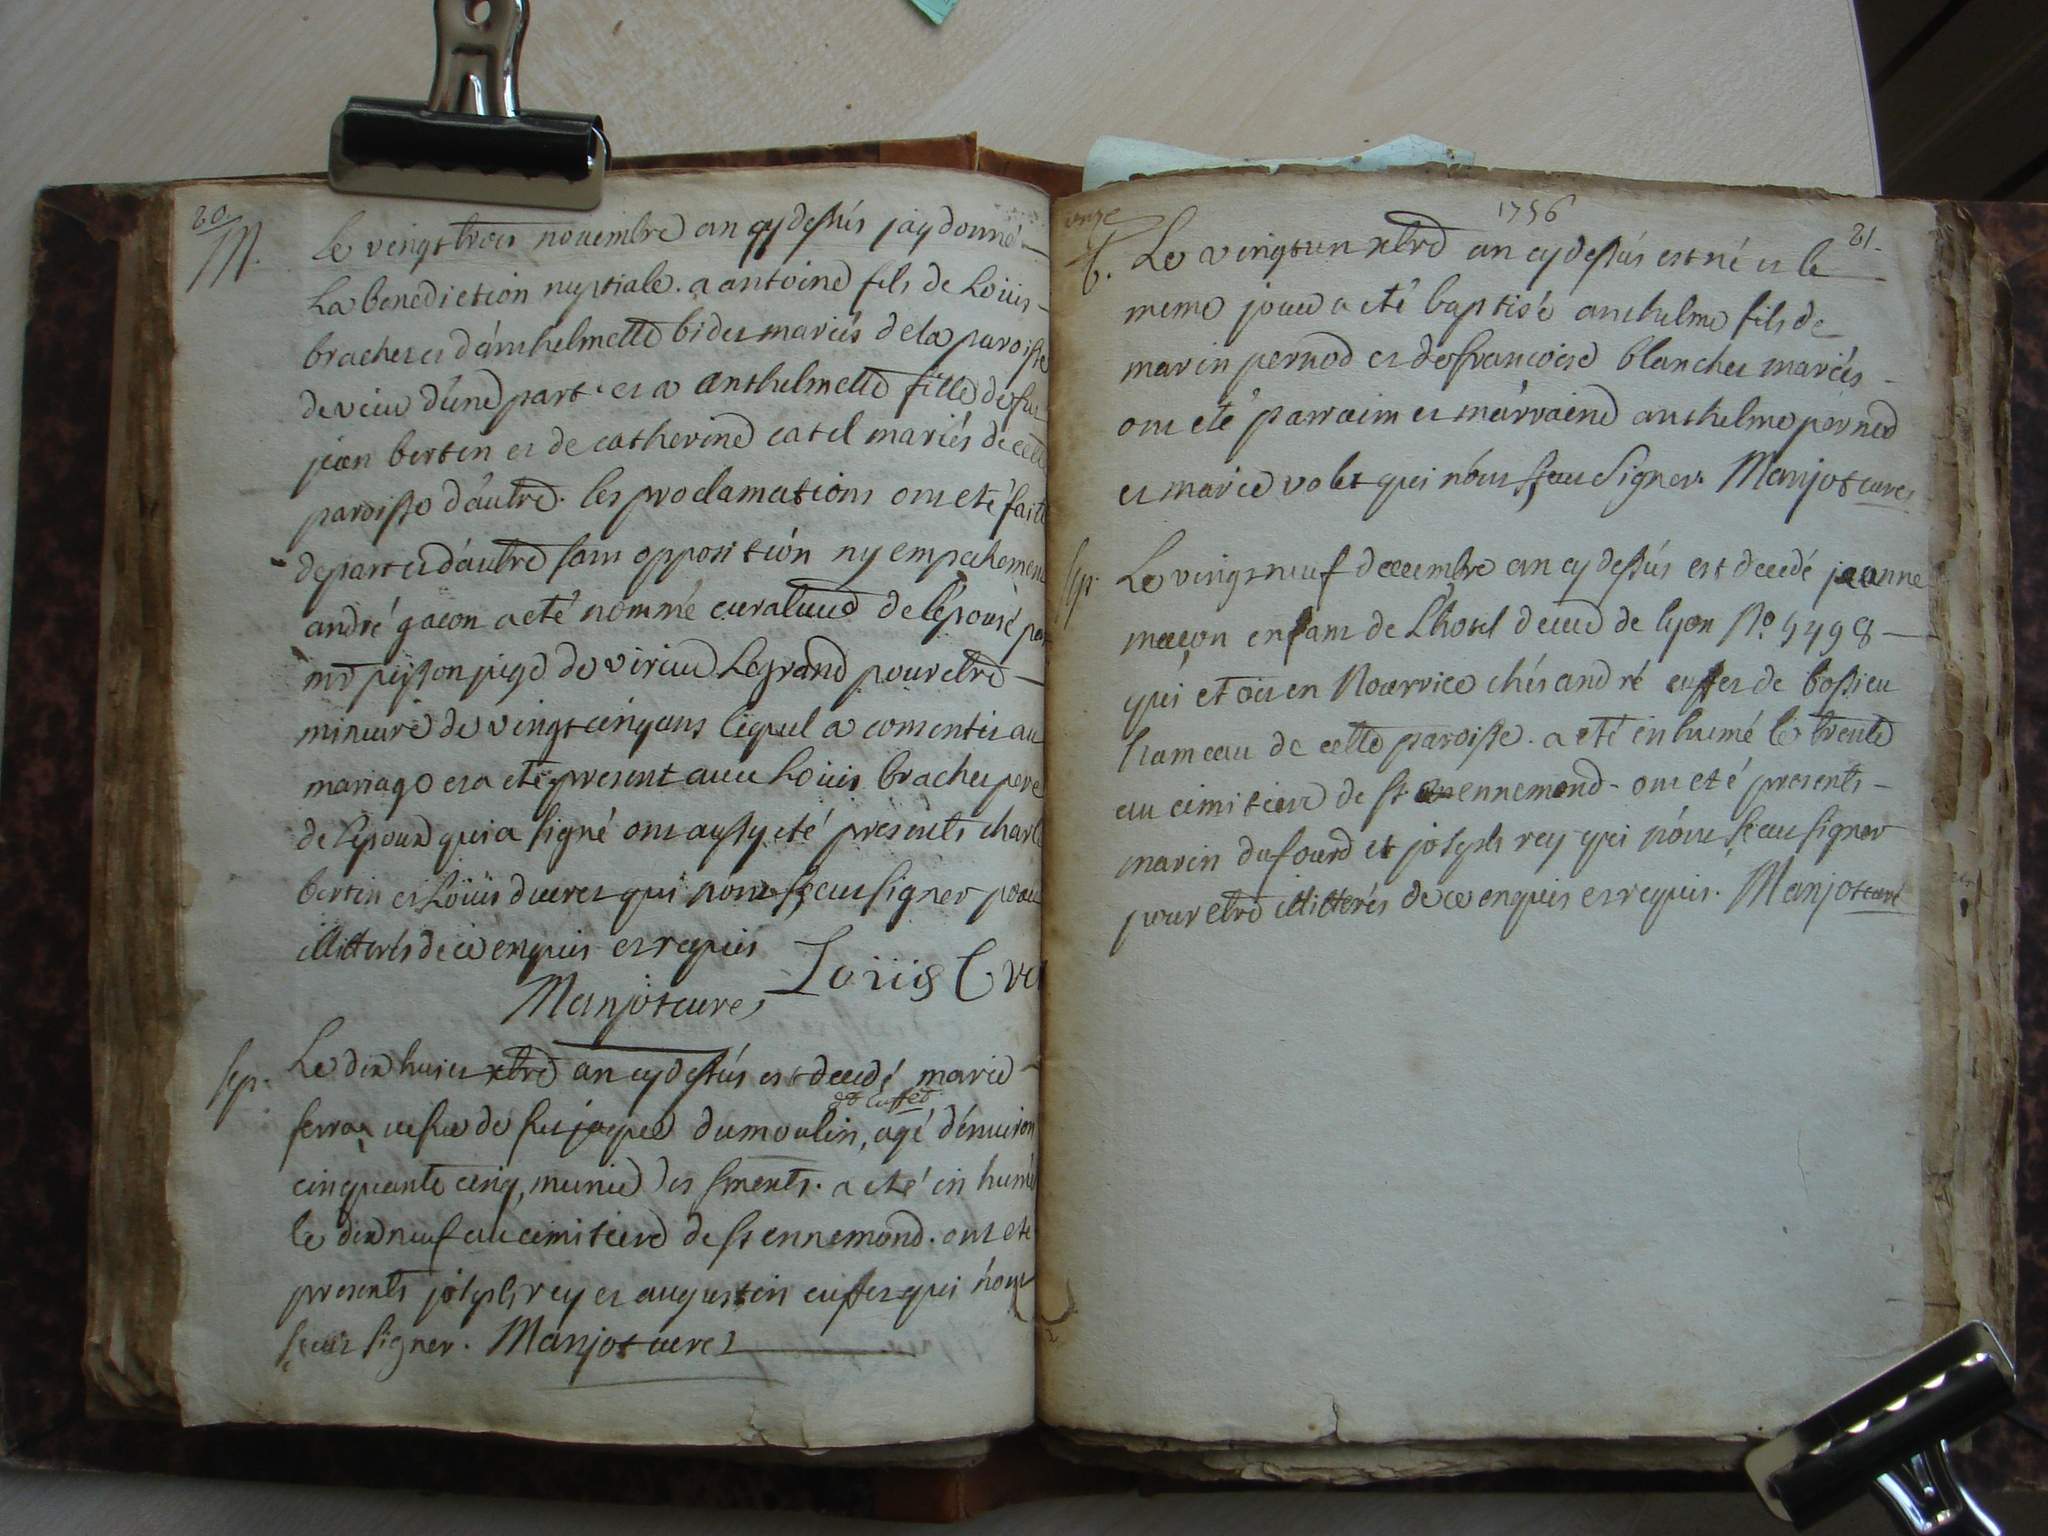 20
M.
Le vingt trois novembre an cy dessus jay donné
La benediction nuptiale. a antoine fils de Loüis
brachet et d'anthelmette bidet mariés de la paroisse
d'une part et a anthelmette fille de feu
jean bertin et de catherine catel mariés de cette
paroisse d'autre. les proclamations ont eté faite
de part et d'autre sans opposition ny empechement
andré gacon a eté nommé curateur de l'épouse par
juge de virieu Le grand pour etre
mineure de vingt cinq ans lequel a consentit au
mariage et a eté present avec Loüis brachet pere
de l'epoux qui a signé ont aussy eté présents charle
bertin et Loüis ducret qui n'ont sceu signer pour
illitterés de ce enquis et requis
Loüis
Manjot curé
sep.
Le dix huit xbre an cy dessus est decedé marie
dt cuffet
ferra veufve de feu jaque dumoulin, agé d'environ
cinquante cinq, munie des sments. a eté in humé
le dix neuf au cimitiere de st ennemond. ont eté
presents joseph rey et augustin cuffet qui n'ont
sceu signer. Manjot curé
onze
1756
21.
b.
Le vingt un xbre an cy dessus est né et le
meme jour a eté baptisé anthelme fils de
marin pernod et de francoise blanchet mariés
ont eté parrain et marraine anthelme pernod
et marie volet qui n'ont sceu signer. Manjot curé
sep.
Le vingt neuf decembre an cy dessus est decedé jeanne
macon enfant de L'hotel dieu de lyon No 5498
qui etoit en Nourrice chés andré cuffet de bossieu
hameau de cette paroisse. a eté in humé le trente
au cimitiere de st ennemond. ont eté presents
marin dufour et joseph rey qui n'ont sceu signer
pour etre illitterés de ce enquis et requis. Manjot curé